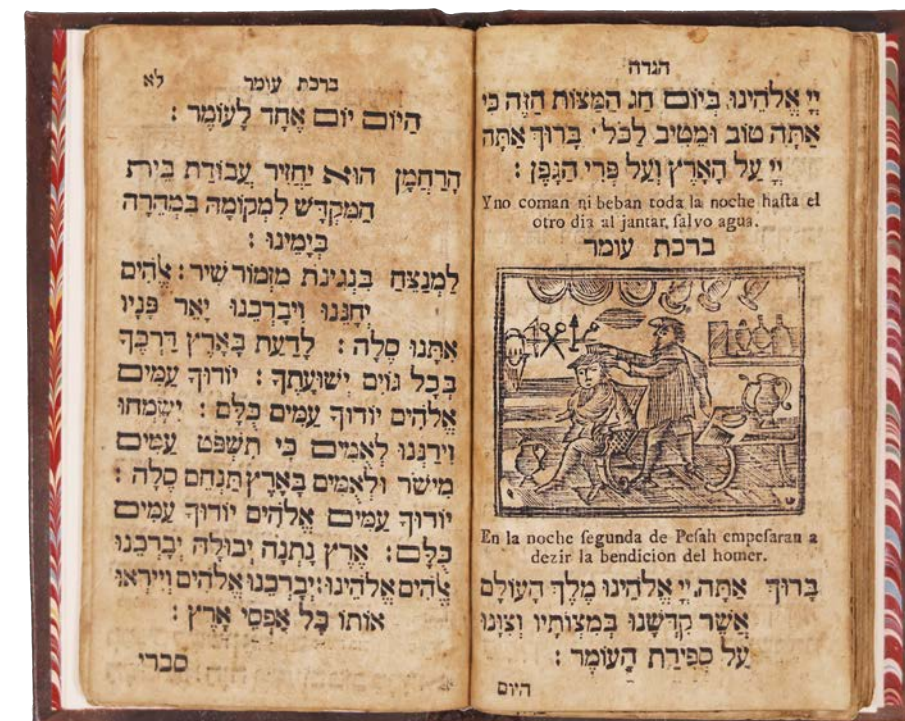 הגדה
יְיָ אֱלֹהֵינוּ בְּיוֹם חַג הַמַּצּוֹת הַזֶּה כִּי
אַתָּה טוֹב וּמֵטִיב לַכֹּל · בָּרוּךְ אַתָּה
יְיָ עַל הָאָרֶץ וְעַל פְּרִי הַגָּפֶן :
Y no coman ni beban toda la noche haſta el
otro dia al jantar, ſalvo agua.
ברכת עומר
En la noche ſegunda de Peſah empeſaran a
dezir la bendicion del homer.
בָּרוּךְ אַתָּה יְיָ אֱלֹהֵינוּ מֶלֶךְ הָעוֹלָם
אֲשֶׁר קִדְּשָׁנוּ בְּמִצְוֹתָיו וְצִוָּנוּ
עַל סְפִירַת הָעוֹמֶר :
היום
ברכת עומר לא
הַיּוֹם יוֹם אֶחָד לָעוֹמֶר :
הָרַחֲמָן הוּא יַחֲזִיר עֲבוֹדַת בֵּית
הַמִּקְדָּשׁ לִמְקוֹמָהּ בִּמְהֵרָה
בְּיָמֵינוּ :
לַמְנַצֵּחַ בִּנְגִינֹת מִזְמוֹר שִׁיר : אֱלֹהִים
יְחָנֵּנוּ וִיבָרְכֵנוּ יָאֵר פָּנָיו
אִתָּנוּ סֶלָה : לָדַעַת בָּאָרֶץ דַּרְכֶּךָ
בְּכָל גּוֹיִם יְשׁוּעָתֶךָ : יוֹדוּךָ עַמִּים
אֱלֹהִים יוֹדוּךָ עַמִּים כֻּלָּם : יִשְׂמְחוּ
וִירַנְּנוּ לְאֻמִּים כִּי תִשְׁפֹּט עַמִּים
מִישֹׁר וּלְאֻמִּים בָּאָרֶץ תַּנְחֵם סֶלָה :
יוֹדוּךָ עַמִּים אֱלֹהִים יוֹדוּךָ עַמִּים
כֻּלָּם : אֶרֶץ נָתְנָה יְבוּלָהּ יְבָרְכֵנוּ
אֱלֹהִים אֱלֹהֵינוּ : יְבָרְכֵנוּ אֱלֹהִים וְיִירְאוּ
אוֹתוֹ כָּל אַפְסֵי אָרֶץ :
סברי